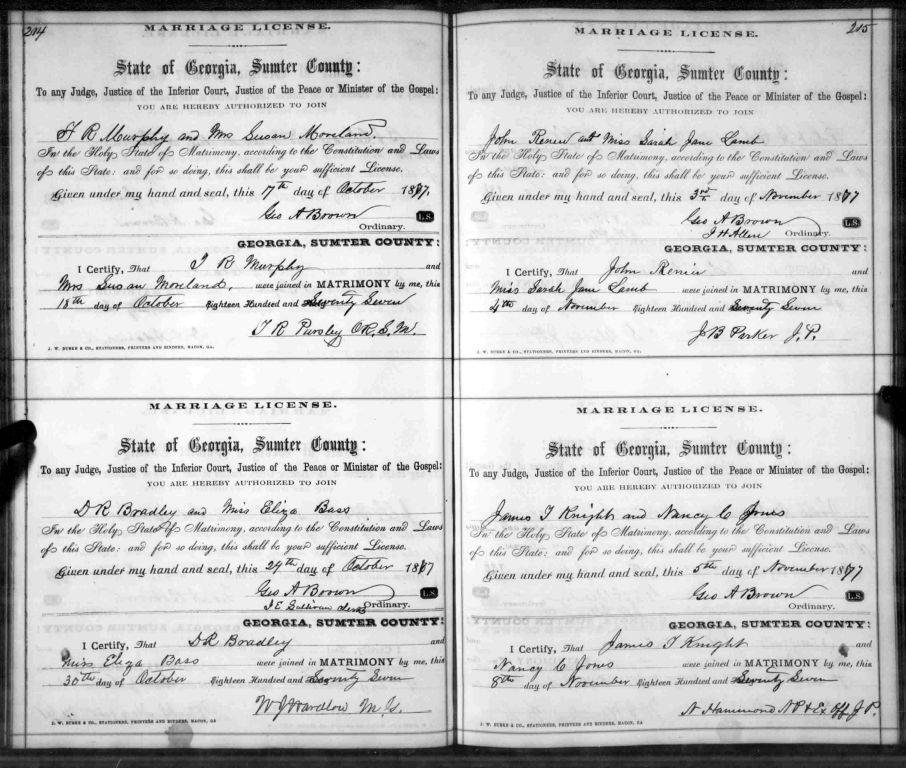 214
MARRIAGE LICENSE.
State of Georgia, Sumter County:
To any Judge, Justice of the Inferior Court, Justice of the Peace or Minister of the Gospel:
YOU ARE HEREBY AUTHORIZED TO JOIN
T R Murphy and Mrs Susan Moreland.
In the Holy State of Matrimony, according to the Constitution and Laws
of this State: and for so doing, this shall be your sufficient License.
Given under my hand and seal, this 17th day of October 1877,
Geo A Brown L.S.
Ordinary.
GEORGIA, SUMTER COUNTY:
I Certify, That T R Murphy and
Mrs Susan Moreland, were joined in MATRIMONY by me, this
18th day of October Eighteen Hundred and Seventy Seven
T. R. Pursley O.R.S.M.
J. W. BURKE & CO., STATIONERS, PRINTERS AND BINDERS, MACON, GA.
MARRIAGE LICENSE.
State of Georgia, Sumter County:
To any Judge, Justice of the Inferior Court, Justice of the Peace or Minister of the Gospel:
YOU ARE HEREBY AUTHORIZED TO JOIN
D R Bradley and Miss Eliza Bass
In the Holy State of Matrimony, according to the Constitution and Laws
of this State: and for so doing, this shall be your sufficient License.
Given under my hand and seal, this 24th day of October 1877
Geo A Brown L.S.
J E Sullivan clerk Ordinary.
GEORGIA, SUMTER COUNTY:
I Certify, That D R Bradley and
Miss Eliza Bass were joined in MATRIMONY by me, this
30th day of October Eighteen Hundred and Seventy Seven
W J Wardlow M. G.
J. W. BURKE & CO., STATIONERS, PRINTERS AND BINDERS, MACON, GA.
215
MARRIAGE LICENSE.
State of Georgia, Sumter County:
To any Judge, Justice of the Inferior Court, Justice of the Peace or Minister of the Gospel:
YOU ARE HEREBY AUTHORIZED TO JOIN
John Renew and Miss Sarah Jane Lamb
In the Holy State of Matrimony, according to the Constitution and Laws
of this State: and for so doing, this shall be your sufficient License.
Given under my hand and seal, this 3rd day of November 1877
Geo A Brown L.S.
J H Allen Ordinary.
GEORGIA, SUMTER COUNTY:
I Certify, That John Renew and
Miss Sarah Jane Lamb were joined in MATRIMONY by me, this
4th day of November Eighteen Hundred and Seventy Seven
J B Parker J. P.
J. W. BURKE & CO., STATIONERS, PRINTERS AND BINDERS, MACON, GA.
MARRIAGE LICENSE.
State of Georgia, Sumter County:
To any Judge, Justice of the Inferior Court, Justice of the Peace or Minister of the Gospel:
YOU ARE HEREBY AUTHORIZED TO JOIN
James T Knight and Nancy C Jones
In the Holy State of Matrimony, according to the Constitution and Laws
of this State: and for so doing, this shall be your sufficient License.
Given under my hand and seal, this 5th day of November 1877
Geo A Brown L.S.
Ordinary.
GEORGIA, SUMTER COUNTY:
I Certify, That James T Knight and
Nancy C Jones were joined in MATRIMONY by me, this
8th day of November Eighteen Hundred and Seventy Seven
N Hammond N P & Ex Off J. P.
J. W. BURKE & CO., STATIONERS, PRINTERS AND BINDERS, MACON, GA